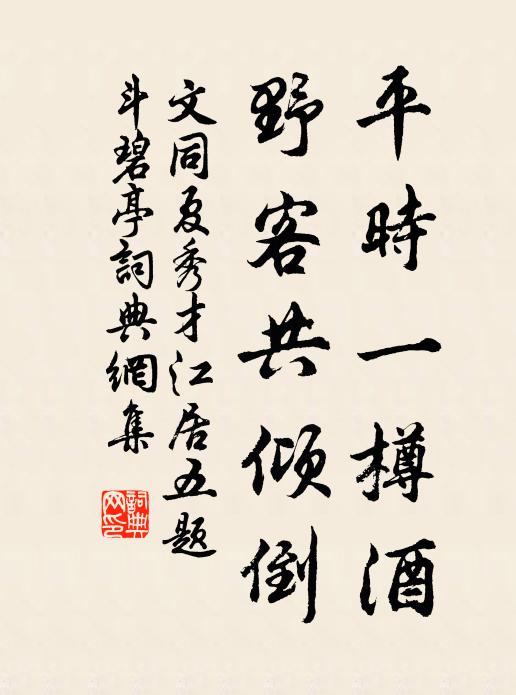 平時一樽酒
野客共傾倒
文同夏秀才江居五題
斗碧亭詞典網集
詞典網印